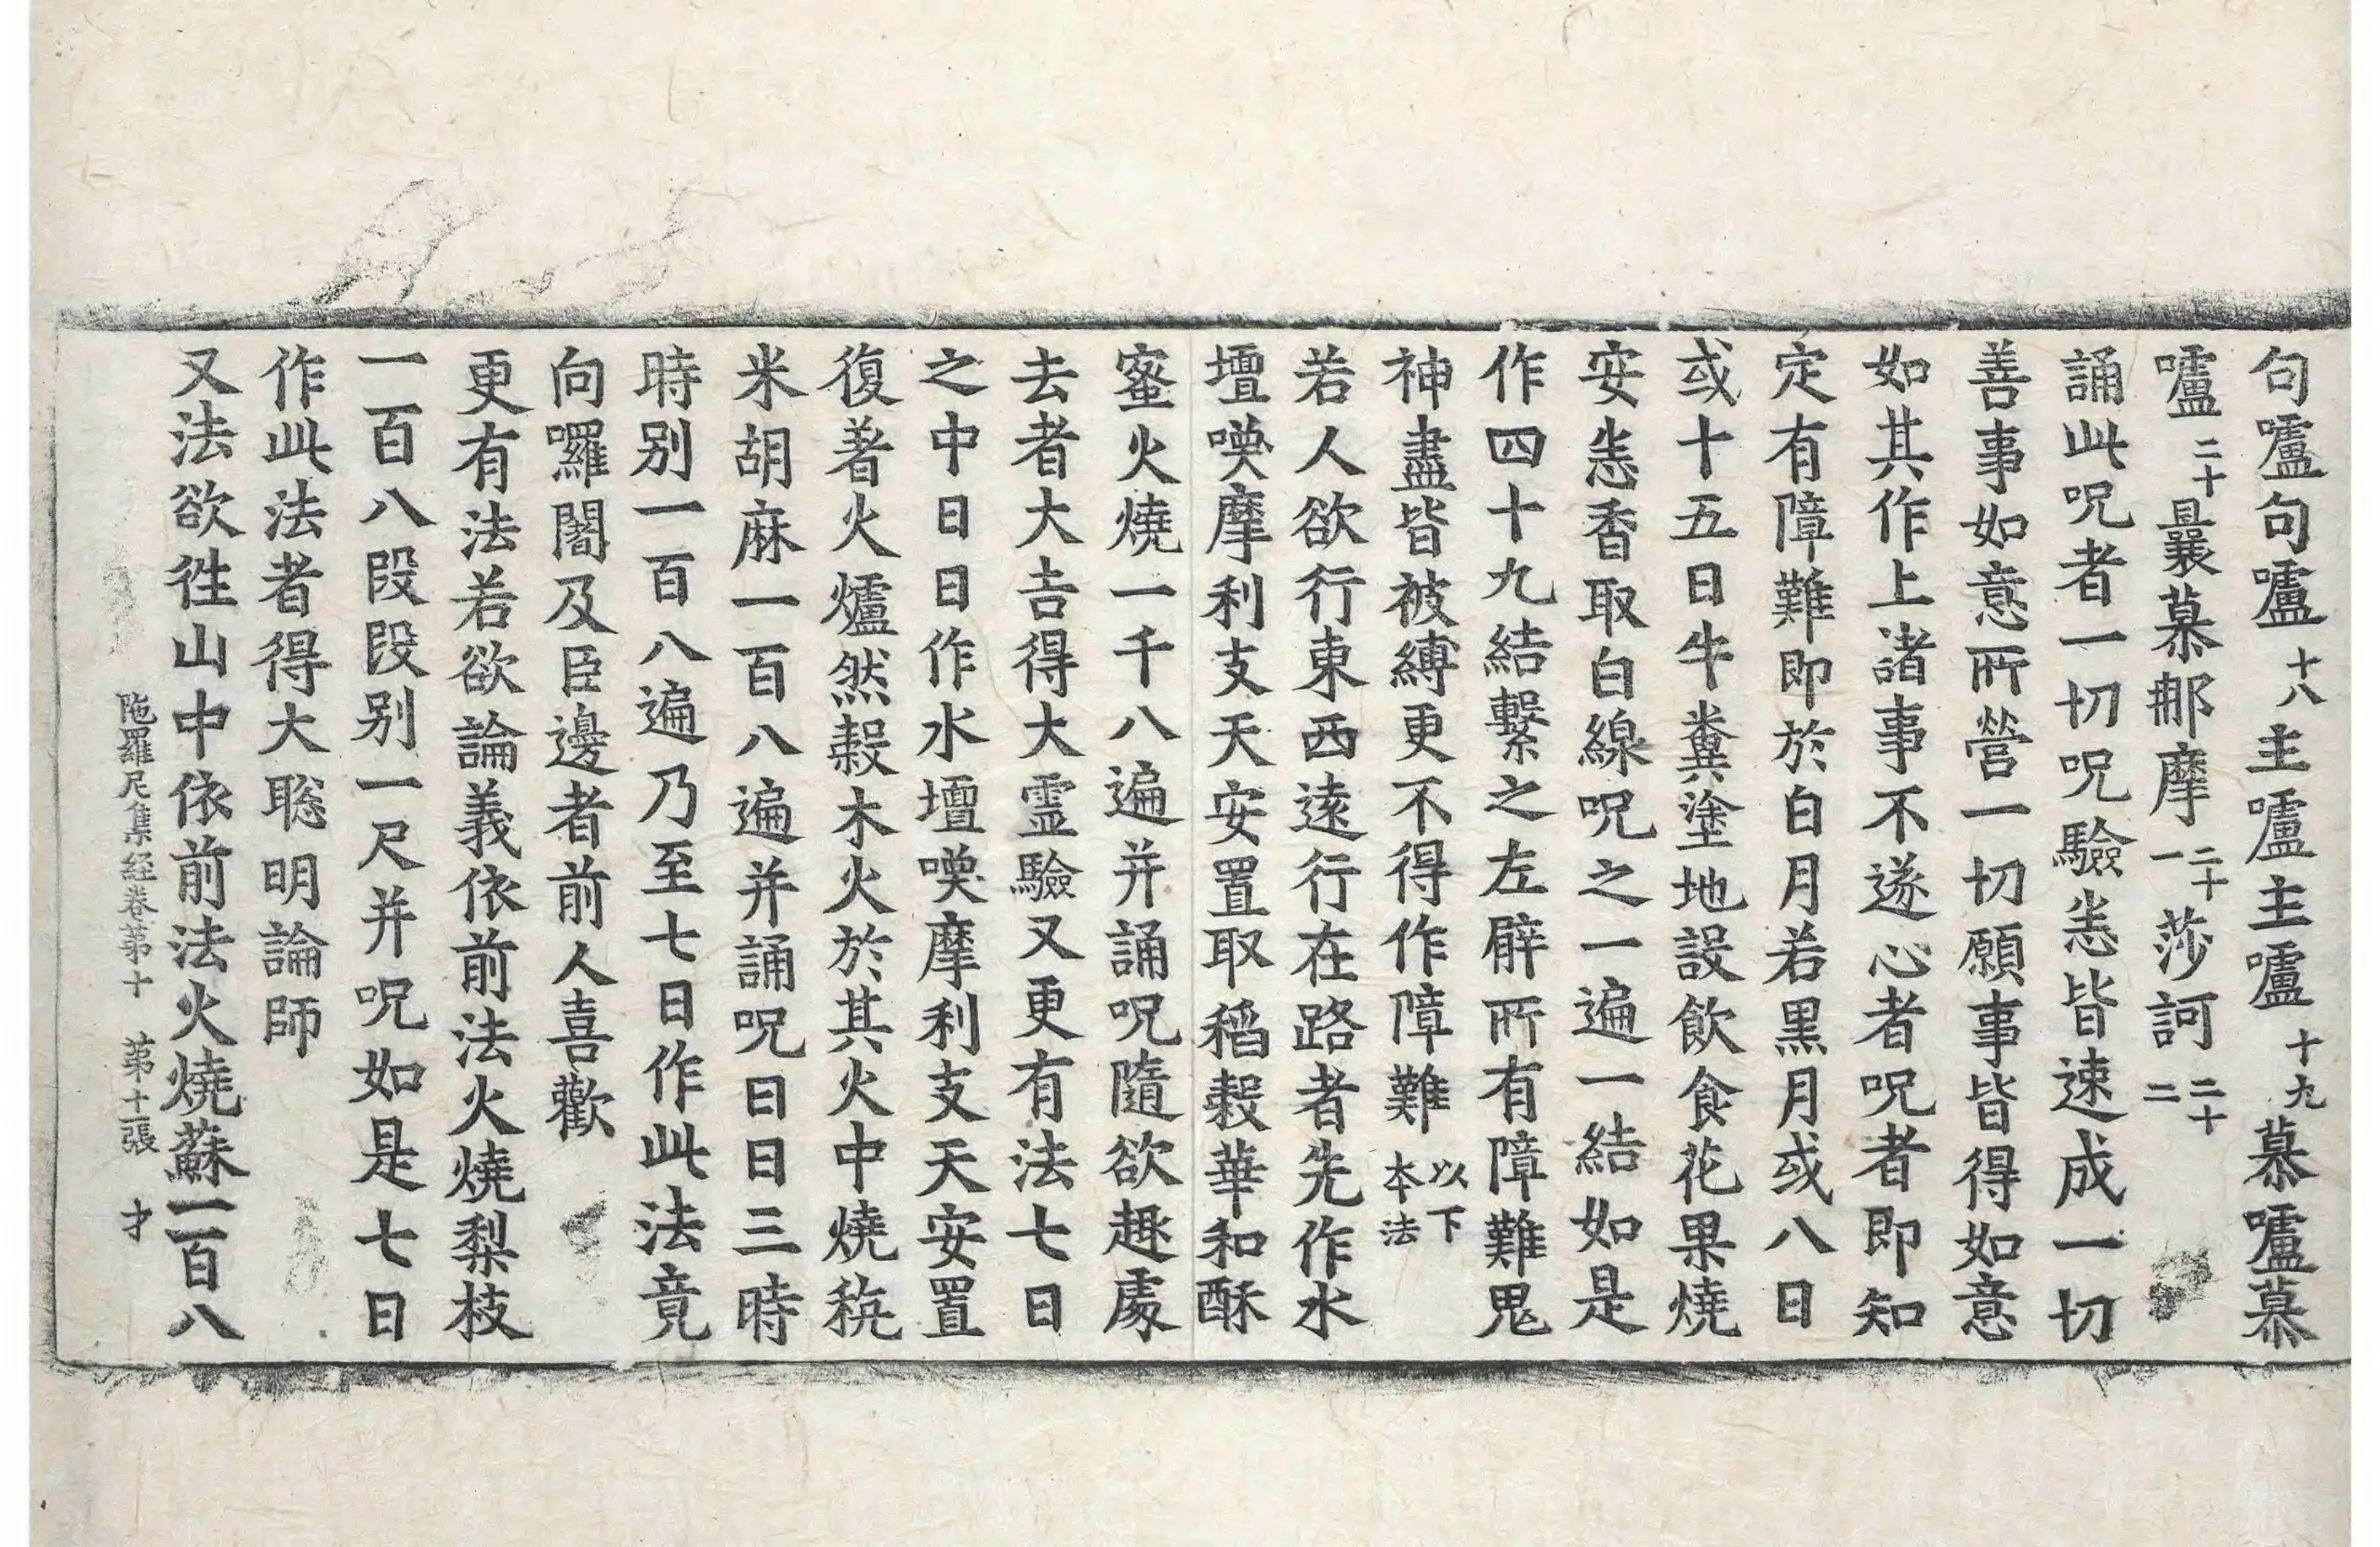 句嚧句嚧十八主嚧主嚧十九慕嚧慕
嚧二十曩慕那摩二十一莎訶二十二
誦此呪者一切呪驗悉皆速成一切
善事如意所營一切願事皆得如意
如其作上諸事不遂心者呪者即知
定有障難即於白月若黑月或八日
或十五日牛糞塗地設飲食花果燒
安悉香取白線呪之一遍一結如是
作四十九結繫之左臂所有障難鬼
神盡皆被縛更不得作障難以下本法
若人欲行東西遠行在路者先作水
壇㗛摩利支天安置取稻穀華和酥
蜜火燒一千八遍并誦呪隨欲趣處
去者大吉得大靈驗又更有法七日
之中日日作水壇㗛摩利支天安置
復著火爐然穀木火於其火中燒粇
米胡麻一百八遍并誦呪日日三時
時別一百八遍乃至七日作此法竟
向囉闍及臣邊者前人喜歡
更有法若欲論義依前法火燒梨枝
一百八段段別一尺并呪如是七日
作此法者得大聡明論師
又法欲往山中依前法火燒蘇一百八
陁羅尼集経卷第十 第十張 才